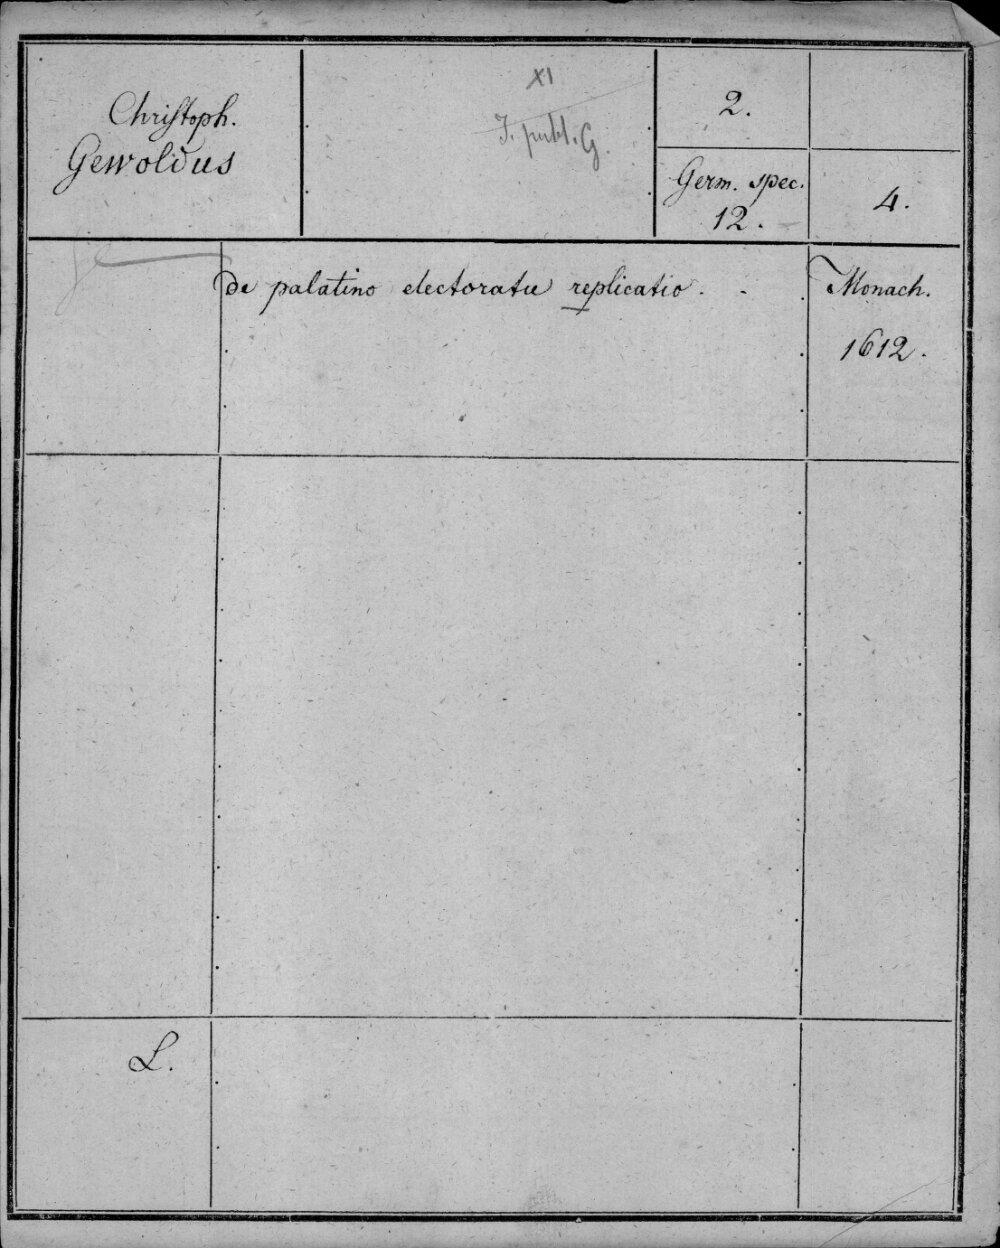 Christoph.
Gewoldus
XI
J. publ. G.
2.
Germ. spec.
12.
4.
de palatino electoratu replicatio.
Monach.
1612.
L.